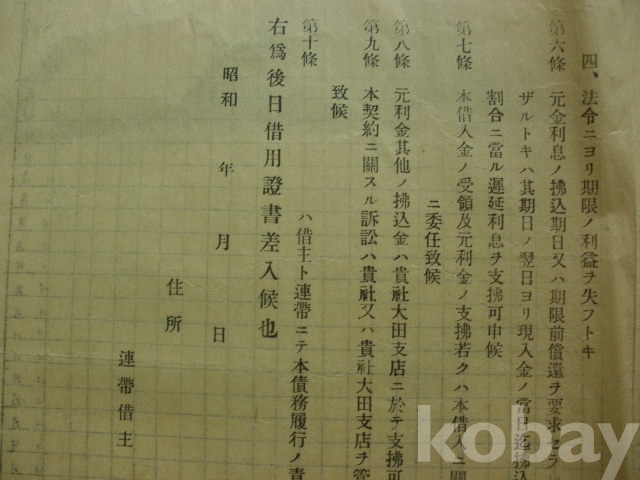 四、法令ニヨリ期限ノ利益ヲ失フトキ
第六條 元金利息ノ拂込期日又ハ期限前償還ヲ要求セラ
ザルトキハ其期日ノ翌日ヨリ現入金ノ當日迄拂込
割合ニ當ル遲延利息ヲ支拂可申候
第七條 本借入金ノ受領及元利金ノ支拂若クハ本借入ニ關
ニ委任致候
第八條 元利金其他ノ拂込金ハ貴社大田支店ニ於テ支拂可
第九條 本契約ニ關スル訴訟ハ貴社又ハ貴社大田支店ヲ管
致候
第十條 ハ借主ト連帶ニテ本債務履行ノ責
右爲後日借用證書差入候也
昭和 年 月 日
住所
連帶借主
kobay